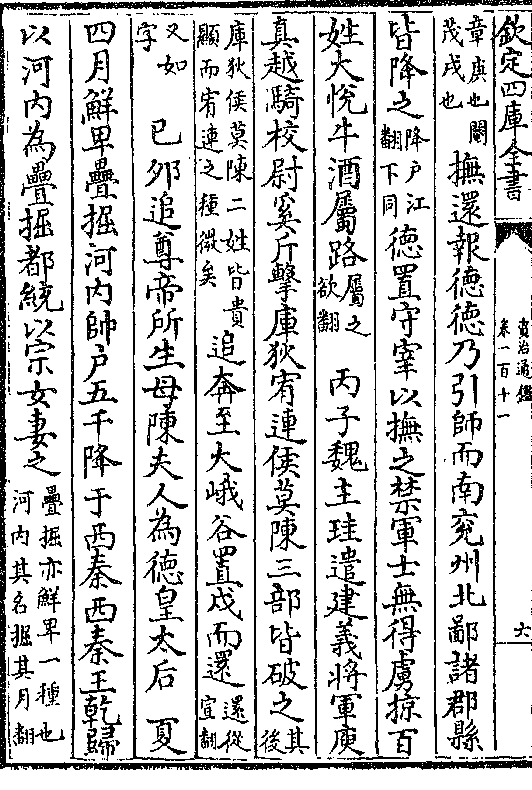 欽定四庫全書
資治通鑑
卷一百十一
六
章庚也闡
茂戌也
撫還報德德乃引師而南兖州北鄙諸郡縣
皆降之
降户江
翻下同
德置守宰以撫之禁軍士無得虜掠百
姓大悅牛酒屬路
屬之
欲翻
丙子魏主珪遣建義將軍庾
真越騎校尉奚斤擊庫狄宥連侯莫陳三部皆破之
其
後
庫狄侯莫陳二姓皆貴
顯而宥連之種微矣
追奔至大峨谷置戍而還
還從
宣翻
又如
字
己夘追尊帝所生母陳夫人為德皇太后
夏
四月鮮卑疊掘河内帥户五千降于西秦西秦王乾歸
以河内為疊掘都統以宗女妻之
疊掘亦鮮卑一種也
河内其名掘其月翻